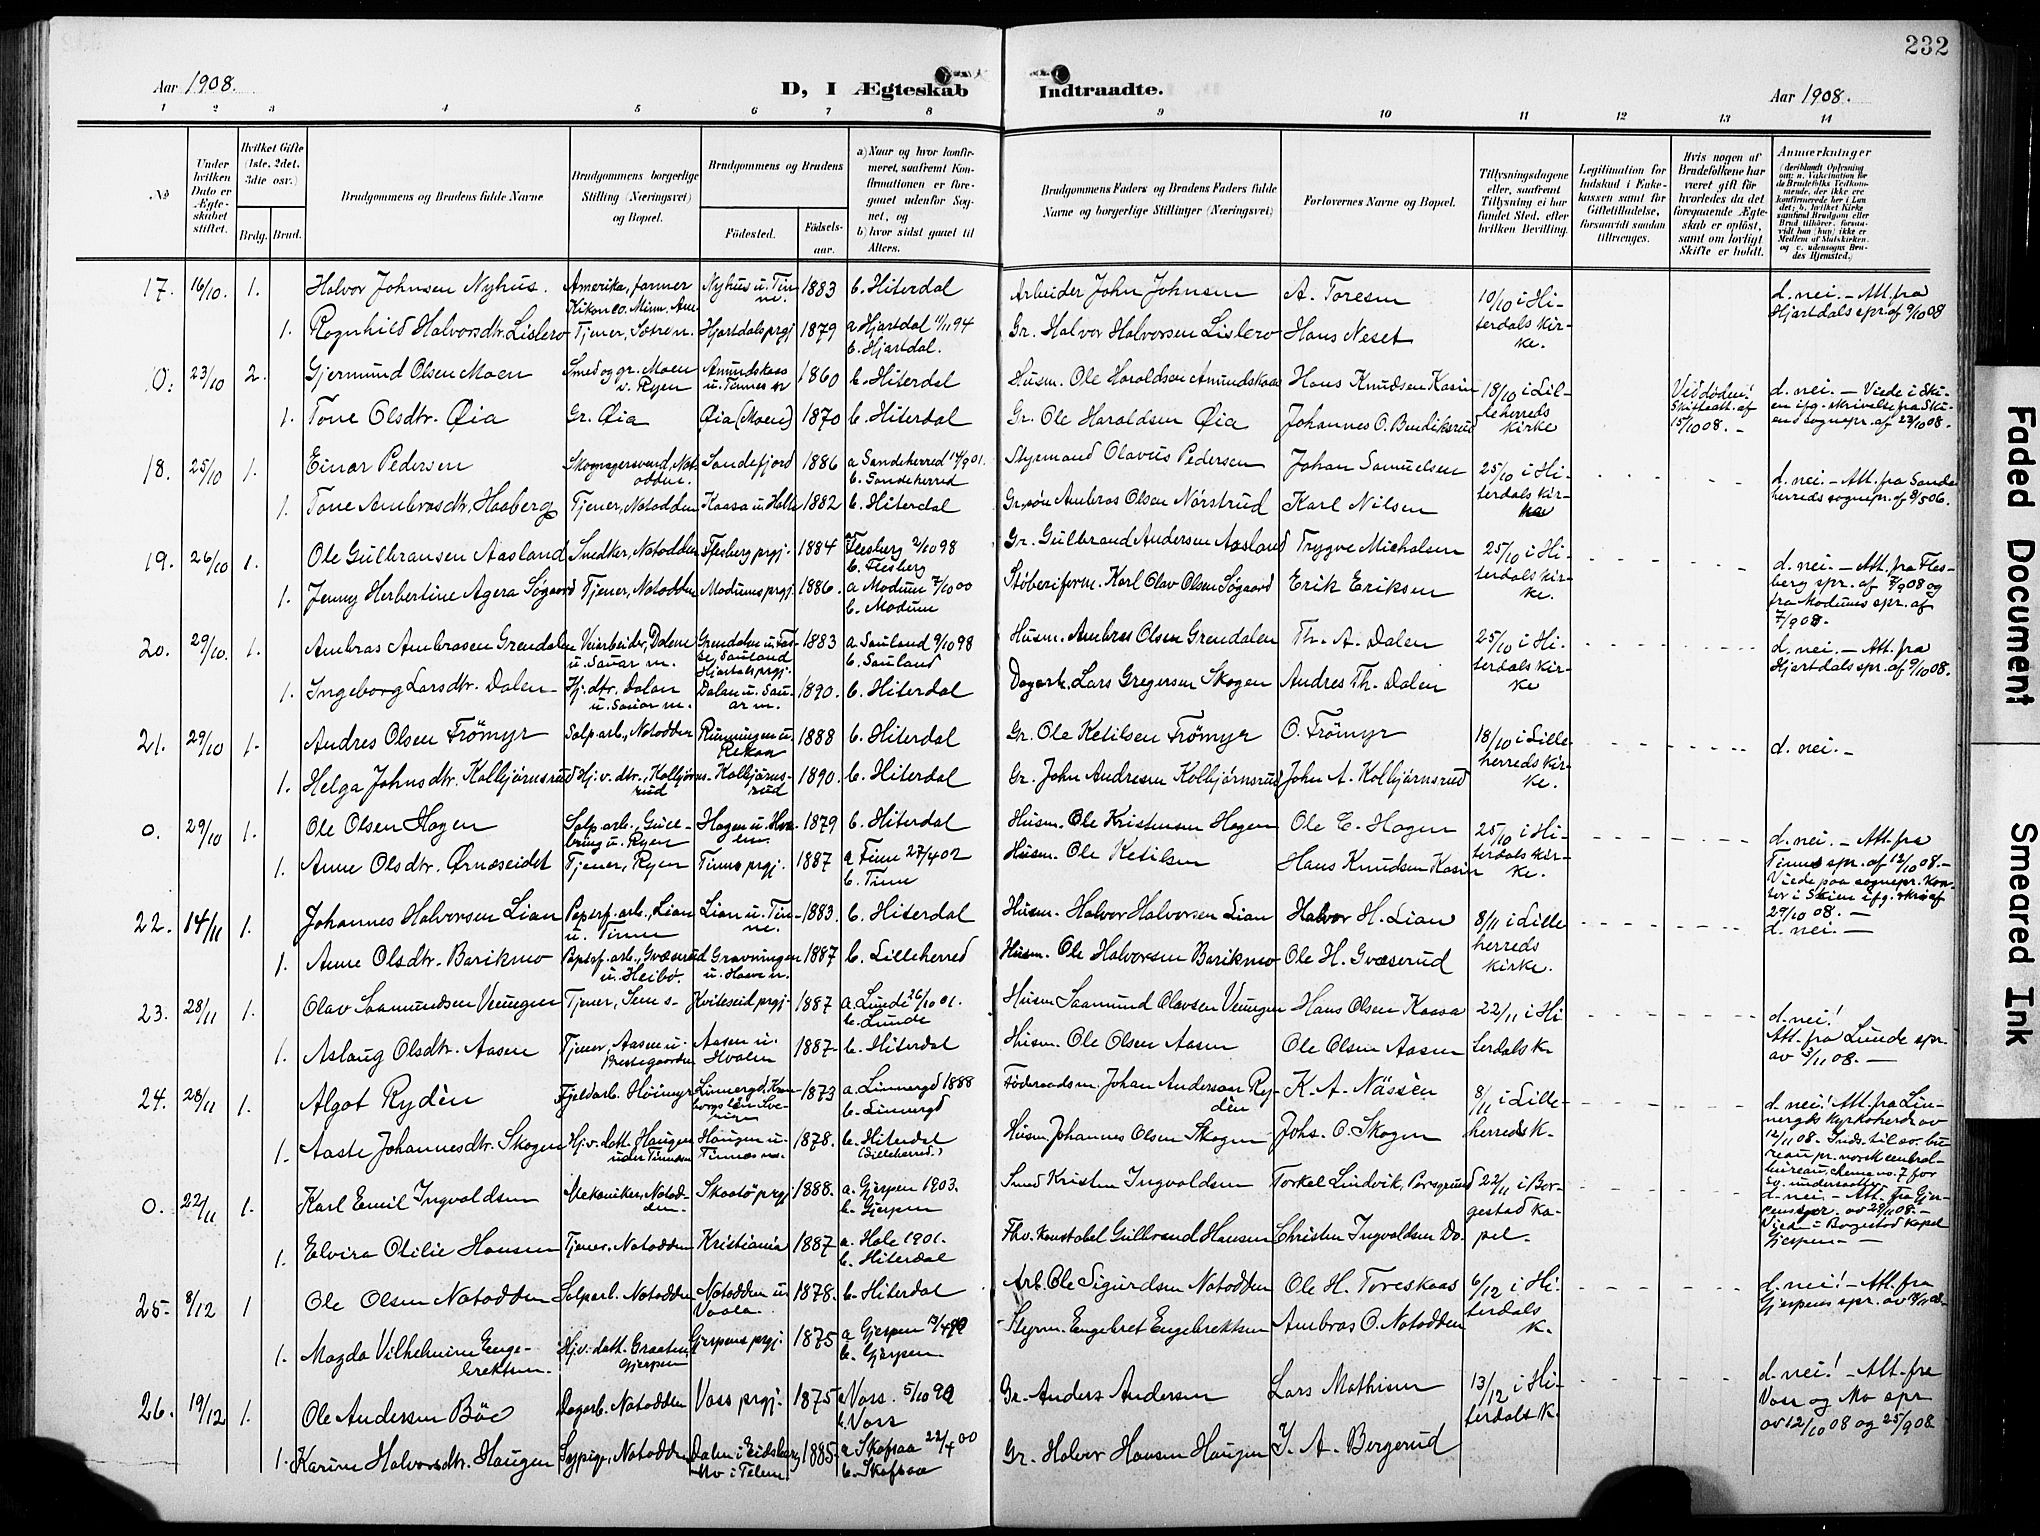 232
Aar 1908.
D, I Ægteskab Indtraadte.
Aar 1908.
1 2 3 4 5 6 7 8 9 10 11 12 13 14
No
Under hvilken Dato er Ægteskabet stiftet.
Hvilket Gifte (1ste, 2det, 3die osv.)
Brdg. Brud.
Brudgommens og Brudens fulde Navne
Brudgommens borgerlige Stilling (Næringsvei) og Bopæl.
Brudgommens og Brudens
Fødested.
Fødselsaar.
a) Naar og hvor konfirmeret, saafremt Konfirmationen er foregaaet udenfor Sognet, og
b) hvor sidst gaaet til Alters.
Brudgommens Faders og Brudens Faders fulde Navne og borgerlige Stillinger (Næringsvei)
Forlovernes Navne og Bopæl.
Tillysningsdagene eller, saafremt Tillysning ei har fundet Sted, efter hvilken Bevilling.
Legitimation for Indskud i Enkekassen samt for Giftetilladelse, forsaavidt saadan tiltrænges.
Hvis nogen af Brudefolkene har været gift før hvorledes da det foregaaende Ægteskab er opløst, samt om lovligt Skifte er holdt.
Anmærkninger
17. 16/10. 1. Halvor Johnsen Nyhus. Amerika, farmer Nyhus u. Tinne. 1883 b. Hiterdal Arbeider John Johnsen A. Toresen 10/10 i Hiterdals kirke. d. nei. - Att. fra Hjartdals spr. af 9/10 08
1. Ragnhild Halvorsdtr. Lislero Tjener, Sætren. Hjartdals prgj 1879 a Hjartdal 11/11 94 b. Hjartdal. Gr. Halvor Halvorsen Lislero Hans Neset
0. 23/10 2. Gjermund Olsen Moen Smed og gr. Moen v. Ryen Amundskaas u. Tinnes 1860 b. Hiterdal Husm. Ole Haroldsen Amundskaas Hans Knudsen Kasin 18/10 i Lilleherreds kirke Ved døden! Skifteatt. af 15/10 08. - d. nei. - Viede i Skien ifg. skrivelse fra Skien sognepr. af 23/10 08.
1. Tone Olsdtr. Øia Gr. Øia Øia (Moen) 1870 b. Hiterdal Gr. Ole Haraldsen Øia Johannes O. Bendiksrud
18. 25/10 1. Einar Pedersen Skomagersvend, Notodden. Sandefjord 1886 a Sandeherred 14/9 01. b. Sandeherred Styrmand Olavus Pedersen Johan Samuelsen 25/10 i Hiterdals kirke d. nei. - Att. fra Sandeherreds sognepr. af 8/5 06.
1. Tone Ambrosdtr. Haaberg Tjener, Notodden Kaasa u. Halle 1882 b. Hiterdal Ambros Olsen Nørstrud Karl Nilsen
19. 26/10 1. Ole Gulbransen Aasland Snedker, Notodden Flesberg prgj. 1884 a Flesberg 2/10 98 b. Flesberg Gr. Gulbrand Andersen Aasland Trygve Michalsen 25/10 i Hiterdals kirke. d. nei. - Att. fra Flesberg spr. af 7/9 08 og fra Modums spr. af 7/9 08.
1. Jenny Herbertine Agera Søgaard Tjener, Notodden Modums prgj. 1886. a Modum 7/10 00 b. Modum Støberiform. Karl Olav Olsen Søgaard Erik Eriksen
20. 29/10. 1. Ambros Ambrosen Grendalen Veiarbeider, Dalene u. Sauar m. Grendalen 1883 a Sauland 9/10 98 b. Sauland Husm. Ambros Olsen Grendalen Th. A. Dalen 25/10 i Hiterdals kirke d. nei. - Att. fra Hjartdals spr. af 9/10 08.
1. Ingeborg Larsdtr. Dalen Hj. dtr. Dalen u. Sauar m. Dalen u. Sauar m. 1890. b. Hiterdal Dagarb. Lars Gregersen Skogen Andres Th. Dalen
21. 29/10 1. Andres Olsen Frömyr Salp. arb., Notodden Runningen u. Rekaa 1888 b. Hiterdal Gr. Ole Ketilsen Frömyr O. Frömyr 18/10 i Lilleherreds kirke. d. nei. -
1. Helga Johnsdtr. Kolbjørnsrud Hj.v. dtr., Kolbjørnsrud Kolbjørnsrud 1890. b. Hiterdal Gr. John Andresen Kolbjørnsrud John A. Kolbjørnsrud
0. 29/10 1. Ole Olsen Hagen Salp. arb. u. Ryen Hagen 1879 b. Hiterdal Husm. Ole Kristensen Hagen Ole C. Hagen 25/10 i Hiterdals kirke. d. nei. - Att. fra Tinns spr. af 12/10 08. - Viede paa sognepr. kontor i Skien ifg. skriv. af 29/10 08. -
1. Anne Olsdtr. Ørnæseidet Tjener, Ryen Tinns prgj. 1887 a Tinn 27/4 02 b. Tinn Husm. Ole Ketilsen Hans Knudsen Kasin
22. 14/11 1. Johannes Halvorsen Lian Papirf. arb., Lian u. Tinne Lian u. Tinne. 1883. b. Hiterdal Husm. Halvor Halvorsen Lian Halvor H. Lian 8/11 i Lilleherreds kirke. d. nei. -
1. Anne Olsdtr. Barikmo Papirf. arb., Gvæserud u. Heibö. Gravningen 1887 b. Lilleherred Husm. Ole Halvorsen Barikmo Ole H. Gvæserud
23. 28/11 1. Olav Saamundsen Venungen Tjener, Sem s- Kviteseid prgj. 1887 a. Lunde 26/10 01. b. Lunde Husm Saamund Olavsen Venungen Hans Olsen Kaasa 22/11 i Hiterdals k. d. nei! Att. fra Lunde spr. av 3/11 08. -
1. Aslaug Olsdtr. Aasen Tjener, Aasen u. Prestegaarden Aasen u. Hvalen 1887 b. Hiterdal Husm. Ole Olsen Aasen Ole Olsen Aasen
24. 28/11 1. Algot Rydèn Fjeldarb. Høimyr 1873 a. Linneryd 1888 b. Linneryd Føderaadsm. Johan Andersson Rydèn K. A. Nässèn 8/11 i Lilleherreds k. d. nei! Att. fra Linneryds kyrkoherde av 12/11 08.
1. Aaste Johannesdtr. Skogen Hj.v. datt. Haugen under Tinnes Haugen u. Tinnes 1878. b. Hiterdal (Lilleherred.) Husm. Johannes Olsen Skogen Johs. O. Skogen
0. 22/11 1. Karl Emil Ingvaldsen Mekaniker, Notodden. Skaatö prgj. 1888. a. Gjerpen 1903. b. Gjerpen Smed Kristen Ingvaldsen Torkel Lindvik, Porsgrund 22/11 i Borgestad kapel. d. nei - Att. fra Gjerpens spr. av 29/11 08. - Viede i Borgestad kapel Gjerpen -
1. Elvira Otilie Hansen Tjener, Notodden Kristiania 1887 a. Hole 1901. b. Hiterdal Fhv. Konstabel Gulbrand Hansen Christen Ingvaldsen Do.
25. 8/12 1 Ole Olsen Notodden Salp.arb. Notodden Notodden u Vaala. 1878. b. Hiterdal Arb. Ole Sigurdsen Notodden Ole H. Toreskaas 6/12 i Hiterdals k. d. nei! - Att. fra Gjerpens spr.
1. Magda Vilhelmine Engebrektsen Hj.v. datt. Graaten, Gjerpen Gjerpens prgj. 1875 a Gjerpen b. Gjerpen Styrm. Engebret Engebrektsen Ambros O. Notodden
26. 19/12 1. Ole Andersen Böe Dagarb. Notodden Voss prgj. 1875 a Voss 5/10 90 b. Voss Gr. Anders Andersen Lars Mathisen 13/12 i Hiterdals k. d. nei! - Att. fra Voss og Mo spr av 12/10 08 og 25/9 08
1. Karine Halvorsdtr. Haugen Sypige, Notodden Dalen i Eidsborg Mo i Telem 1885 a Skafsaa 22/4 00 b. Skafsaa Gr. Halvor Hansen Haugen A. Bergerud
Faded Document
Smeared Ink